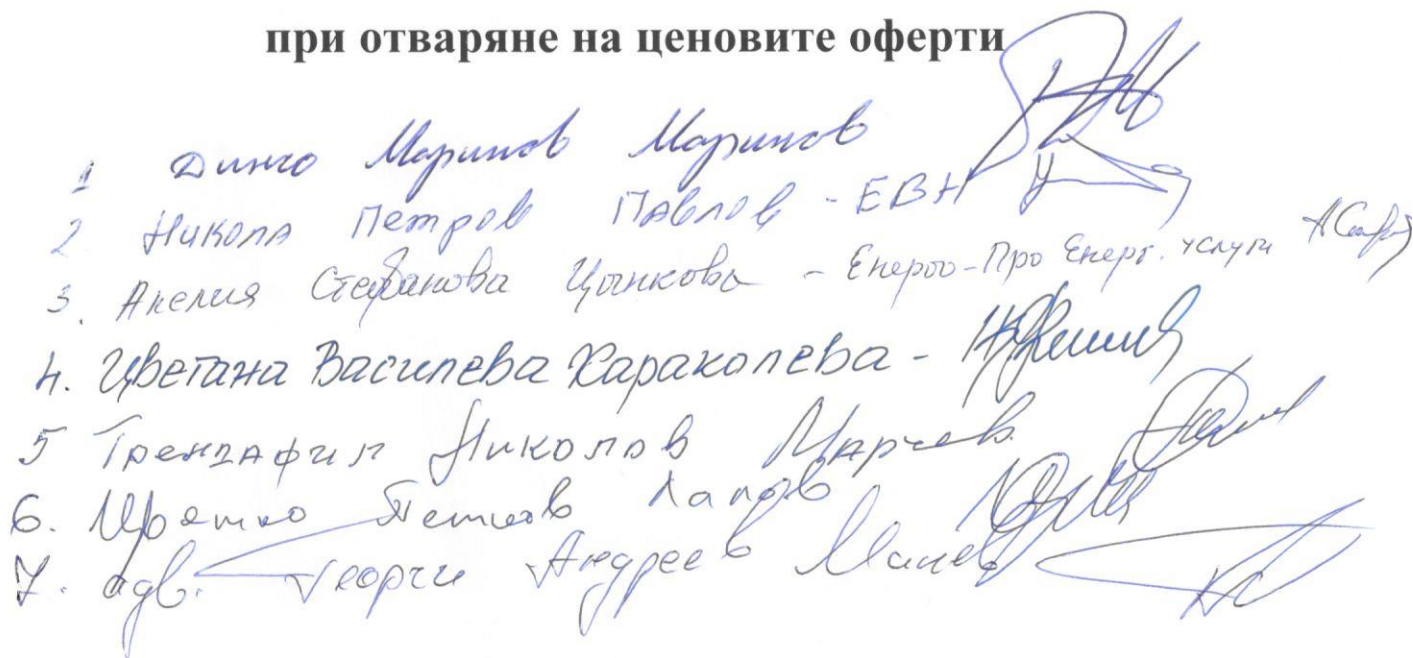 при отваряне на ценовите оферти
1 Динко Маринов Маринов
2 Никола Петров Павлов - ЕВН
3. Анелия Стефанова Цонкова - Енерго-Про Енерг. услуги
4. Цветана Василева Караколева -
5 Трендафил Николов Марчев
6. Цветко Петков Лапов
7. адв. Георги Андреев Манев